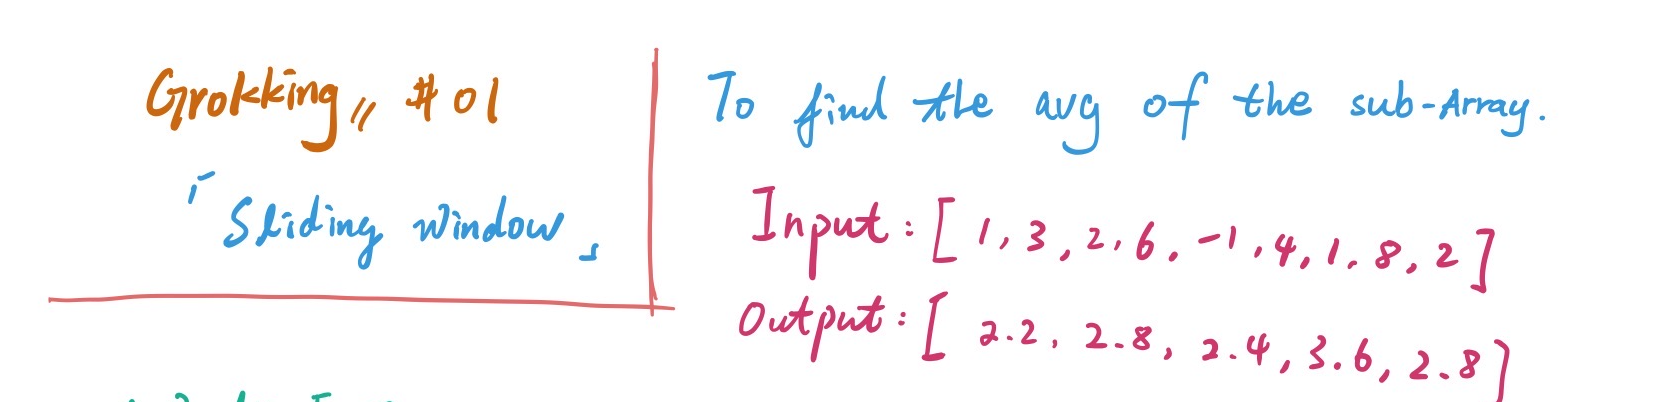 Grokking〃 #01
「Sliding window」
To find the avg of the sub-Array.
Input: [1, 3, 2, 6, -1, 4, 1, 8, 2]
Output: [2.2, 2.8, 2.4, 3.6, 2.8]